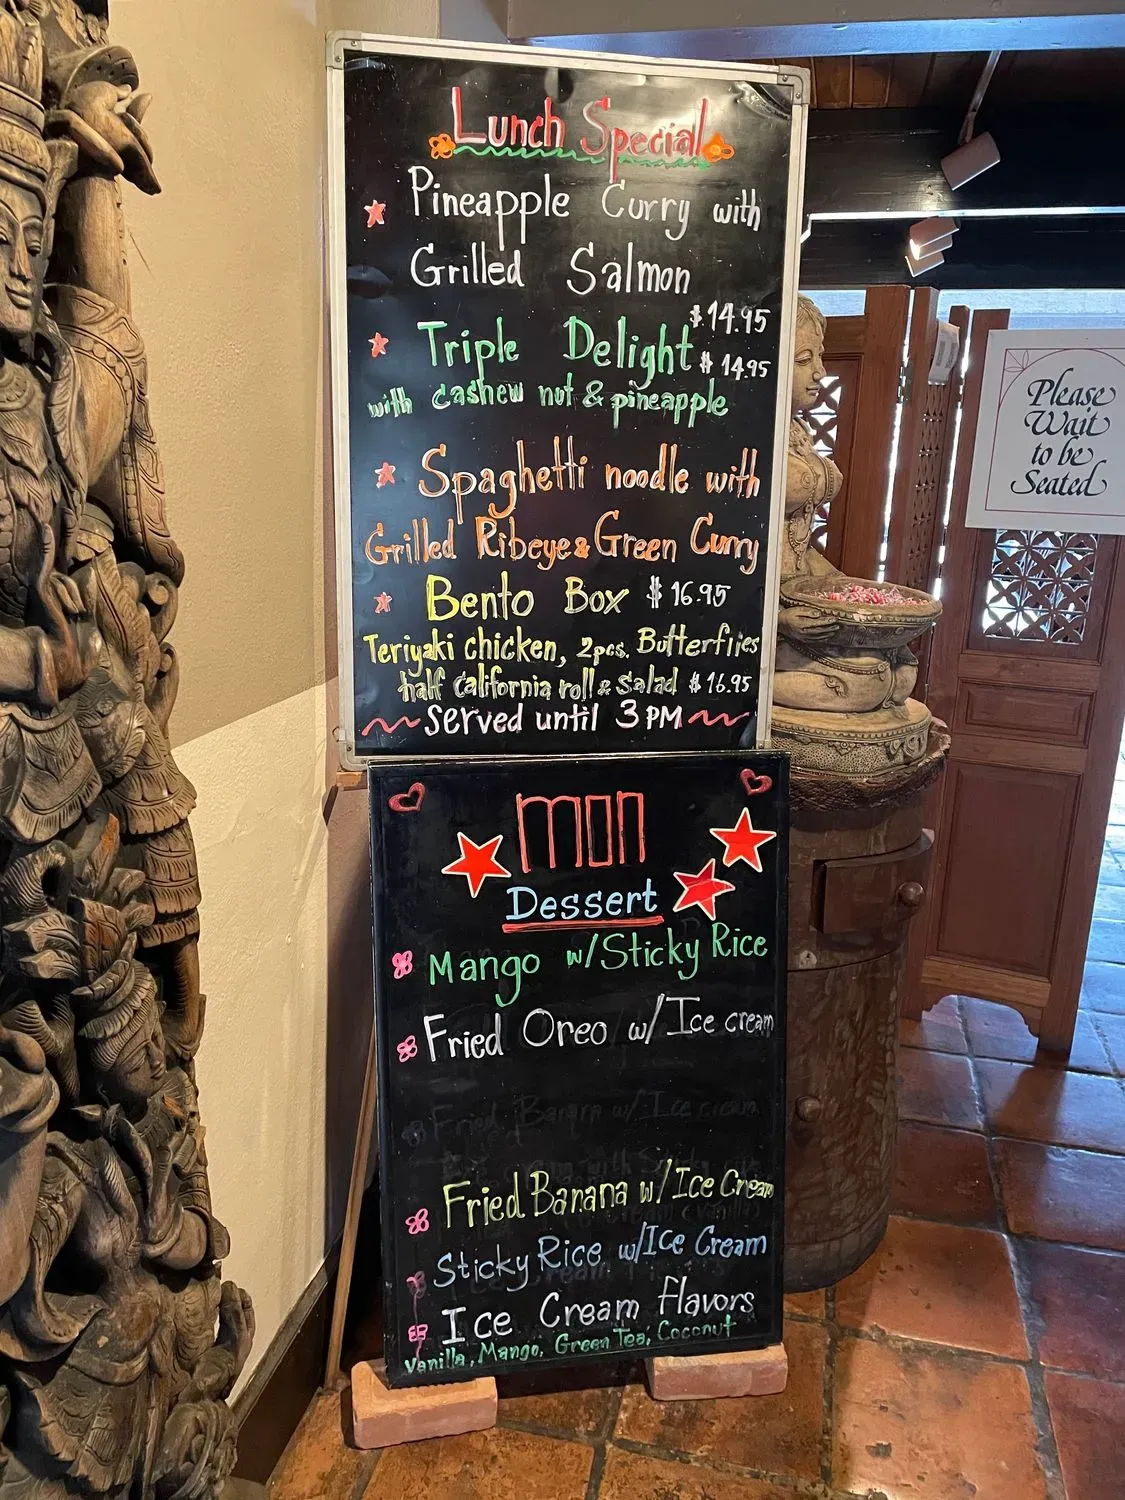 Lunch Special
Pineapple Curry with
Grilled Salmon
$14.95
Triple Delight $14.95
with cashew nut & pineapple
Spaghetti noodle with
Grilled Ribeye & Green Curry
Bento Box $16.95
Teriyaki chicken, 2pcs. Butterflies
half California roll & Salad $16.95
Served until 3 PM
Please
Wait
to be
Seated
mon
Dessert
Mango w/Sticky Rice
Fried Oreo w/ Ice cream
Fried Banana w/ Ice cream
Fried Banana w/ Ice Cream
Sticky Rice w/Ice Cream
Ice Cream flavors
Vanilla, Mango, Green Tea, Coconut